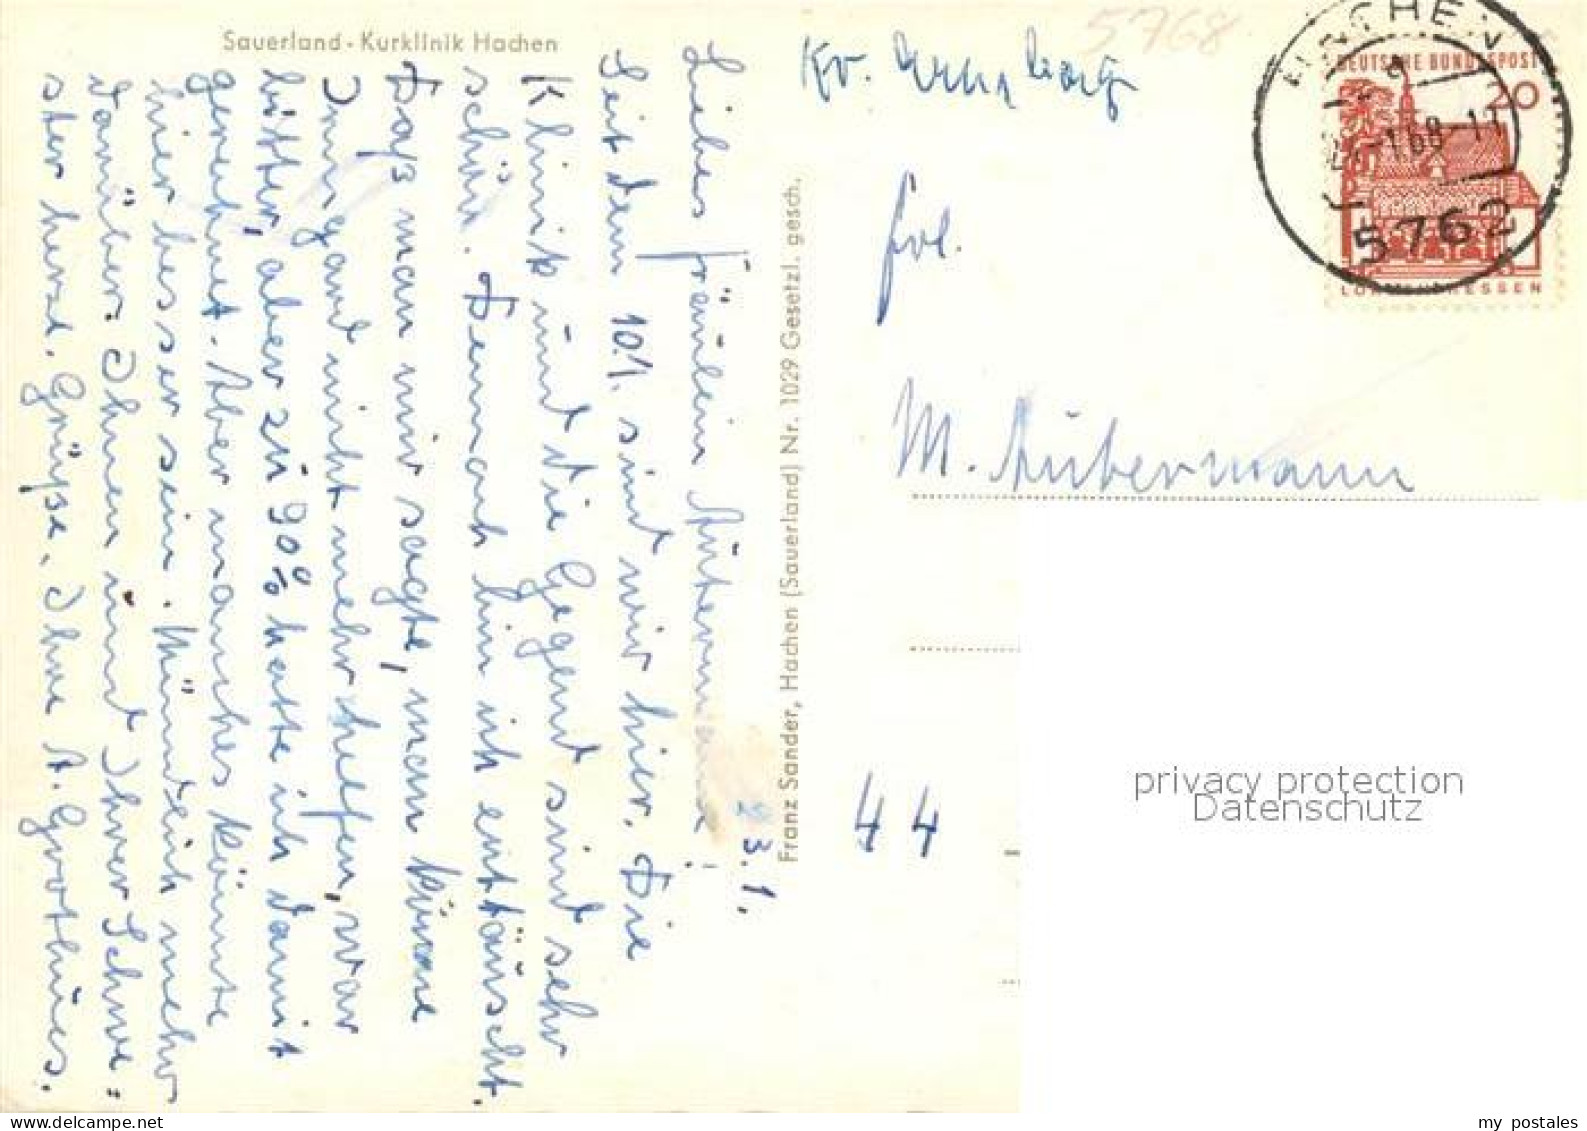 Sauerland-Kurklinik Hachen
Liebes Fräulein
Seit dem 10.1. sind wir hier. Die
Klinik und die Gegend sind sehr
schön. Dennoch bin ich enttäuscht.
Daß man mir sagte, man könne
Irmgard nicht mehr helfen, war
bitter, aber zu 90% hatte ich damit
gerechnet. Aber manches könnte
hier besser sein. Mündlich mehr
darüber. Ihnen und Ihrer Schwe-
ster herzl. Grüße, Ihre A. Grothues.
23.1.
Franz Sander, Hachen (Sauerland) Nr. 1029 Gesetzl. gesch.
5768
Kr. Arnsberg
Frl.
M.
44
DEUTSCHE BUNDESPOST
20
LORSCH/HESSEN
5762
privacy protection
Datenschutz
my postales